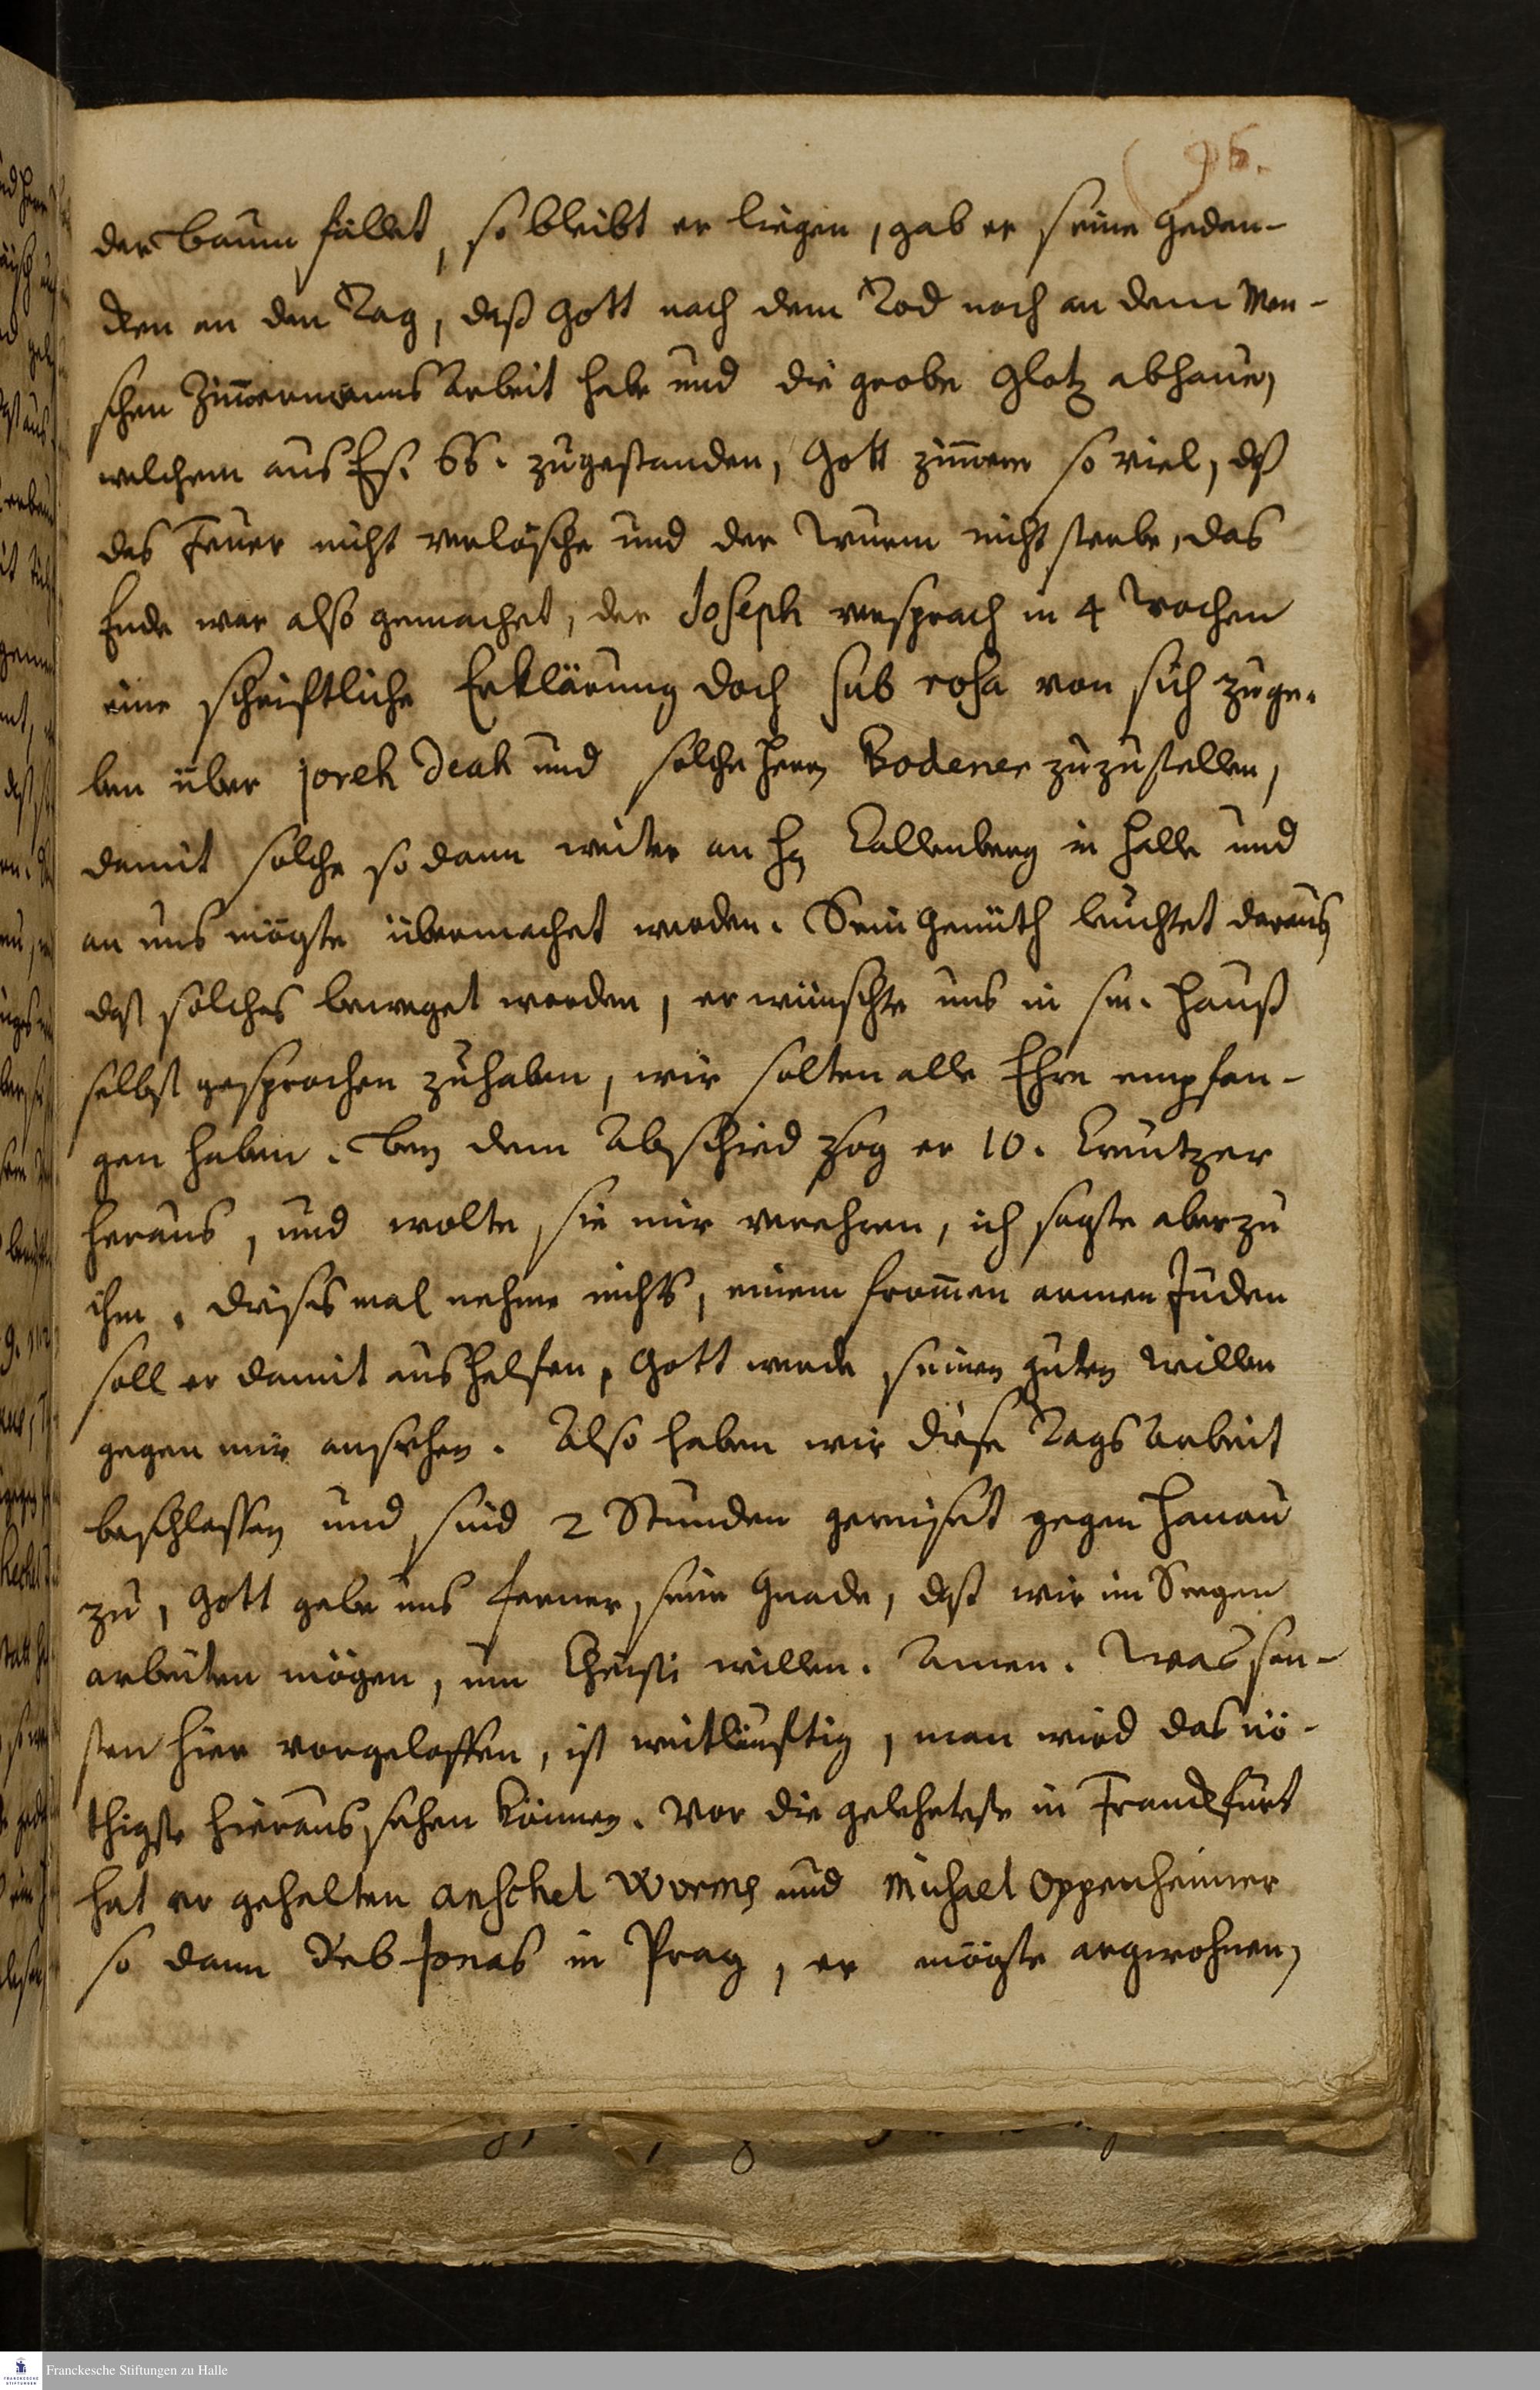 (96.
der baum fället, so bleibt er liegen, gab er seine gedan-
cken an den Tag, daß Gott nach dem Tod noch an dem Men-
schen Zim̄ermanns Arbeit habe und die grobe Glotz abhaue,
welchem aus Es. 66. zugestanden, Gott zim̄ere so viel, dß
das Feuer nicht verlösche und der Wurm nicht sterbe, das
Ende war also gemachet, der Joseph versprach in 4 Wochen
eine schrifftliche Erklärung doch sub rosa von sich zuge-
ben über joreh deah und solche Herrn Bodener zuzustellen,
damit solche so dann weiter an Hn Callenberg in Halle und
an uns mögte übermachet werden. Sein Gemüth leuchtet daraus
daß solches beweget worden, er wünschte uns in sm. Hauß
selbst gesprochen zuhaben, wir solten alle Ehre empfan-
gen haben. Bey dem Abschied zog er 10. Creutzer
heraus, und wolte sie mir verehren, ich sagte aber zu
ihm, dieses mal nehme nichts, einem from̄en armen Juden
soll er damit aushelfen, Gott werde seinen guten Willen
gegen mir ansehen. Also haben wir diese Tags Arbeit
beschlossen und sind 2 Stunden gereiset gegen Hanau
zu, Gott gebe uns ferner seine Gnade, daß wir im Seegen
arbeiten mögen, um Christi willen. Amen. Was son-
sten hier vorgeloffen, ist weitläufftig, man wird das nö-
thigste hieraus sehen können. Vor die gelehrteste in Franckfurt
hat er gehalten Anschel Worms und Michael Oppenheimer
so dann Reb Jonas in Prag, er mögte argwohnen,
Franckesche Stiftungen zu Halle